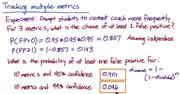 Tracking multiple metrics
Experiment: Prompt students to contact coach more frequently
For 3 metrics, what is the chance of at least 1 false positive?
P(FP=0) = 0.95*0.95*0.95 = 0.857 Assuming independence
P(FP≥1) = 1-0.857 = 0.143
What is the probability of at least one false positive for:
10 metrics and 95% confidence 0.401
10 metrics and 99% confidence 0.096